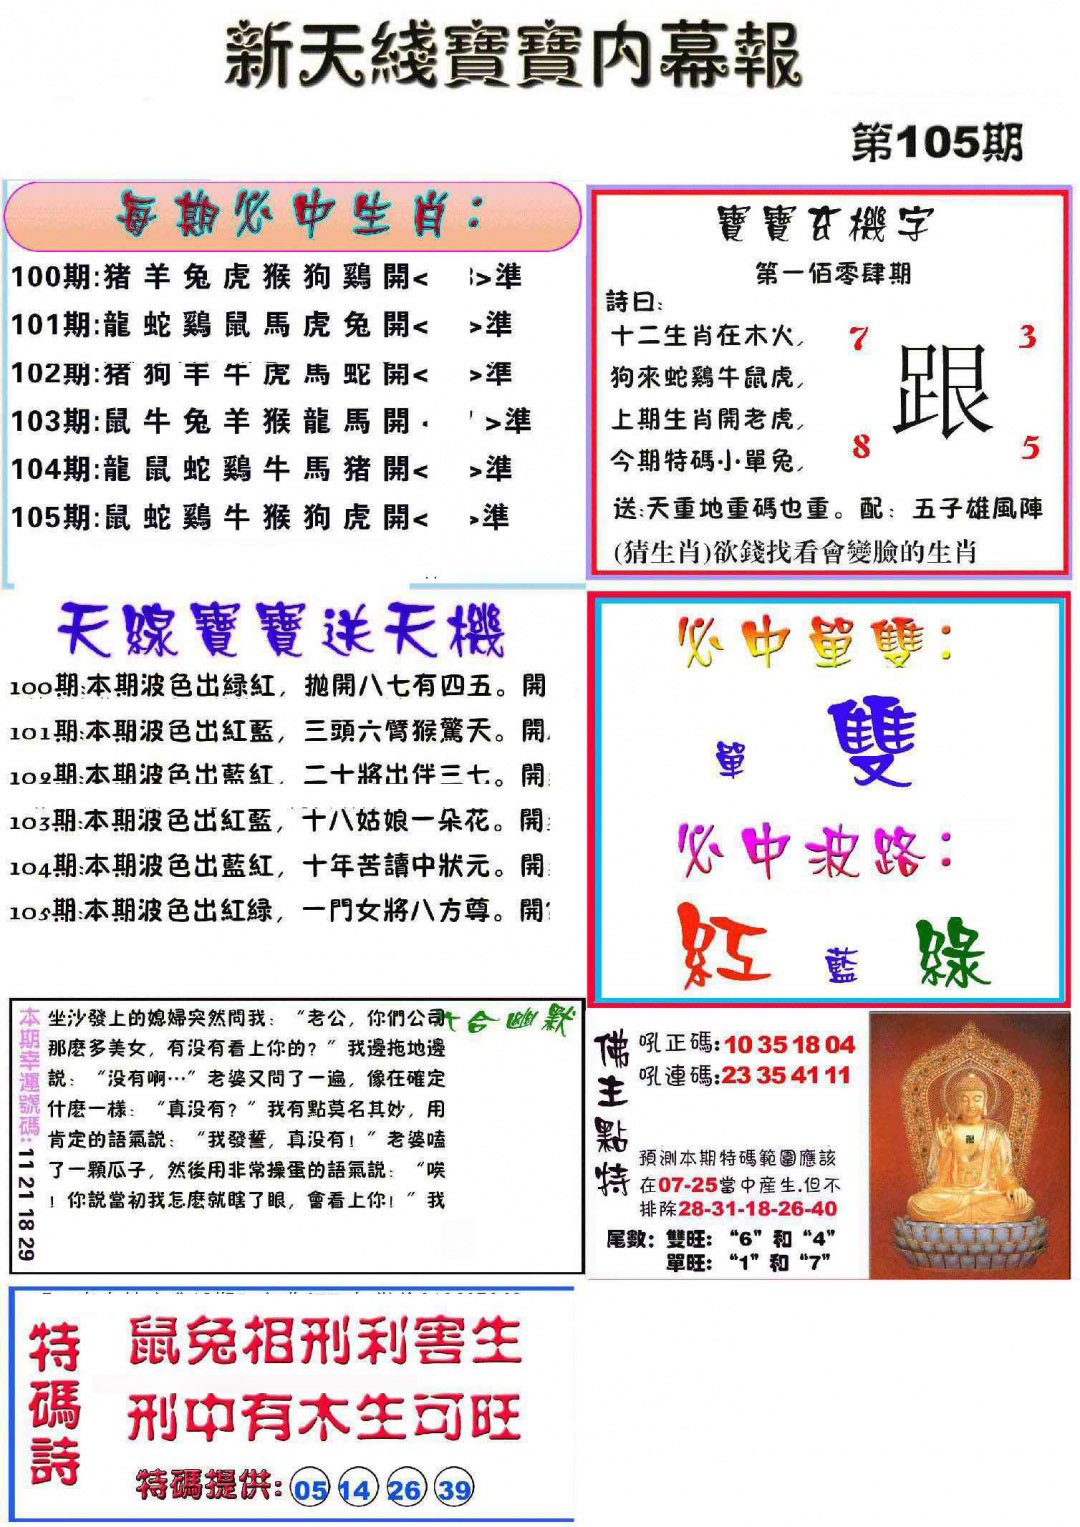 新天綫寶寶内幕報
第105期
每期必中生肖：
100期:猪羊兔虎猴狗鷄開< >準
101期:龍蛇鷄鼠馬虎兔開< >準
102期:猪狗羊牛虎馬蛇開< >準
103期:鼠牛兔羊猴龍馬開 >準
104期:龍鼠蛇鷄牛馬猪開< >準
105期:鼠蛇鷄牛猴狗虎開< >準
寶寶玄機字
第一佰零肆期
詩曰:
十二生肖在木火,
狗來蛇鷄牛鼠虎,
上期生肖開老虎,
今期特碼·小·單兔,
7 3
跟
8 5
送:天重地重碼也重。配：五子雄風陣
(猜生肖)欲錢找看會變臉的生肖
天線寶寶送天機
100期:本期波色出緑紅，抛開八七有四五。開
101期:本期波色出紅藍，三頭六臂猴驚天。開
102期:本期波色出藍紅，二十將出伴三七。開
103期:本期波色出紅藍，十八姑娘一朵花。開
104期:本期波色出藍紅，十年苦讀中狀元。開
105期:本期波色出紅緑，一門女將八方尊。開
必中單雙：
單 雙
必中波路：
紅 藍 綠
本期幸運號碼:11 21 18 29
六合幽默
坐沙發上的媳婦突然問我：“老公，你們公司
那麽多美女，有没有看上你的？”我邊拖地邊
説：“没有啊…”老婆又問了一遍，像在確定
什麽一樣：“真没有？”我有點莫名其妙，用
肯定的語氣説：“我發誓，真没有！”老婆嗑
了一顆瓜子，然後用非常操蛋的語氣説：“唉
！你説當初我怎麽就瞎了眼，會看上你！”我
佛主點特
吼正碼:10 35 18 04
吼連碼:23 35 41 11
預測本期特碼範圍應該
在07-25當中産生.但不
排除28-31-18-26-40
尾數：雙旺：“6”和“4”
單旺：“1”和“7”
特碼詩
鼠兔相刑利害生
刑中有木生可旺
特碼提供: 05 14 26 39